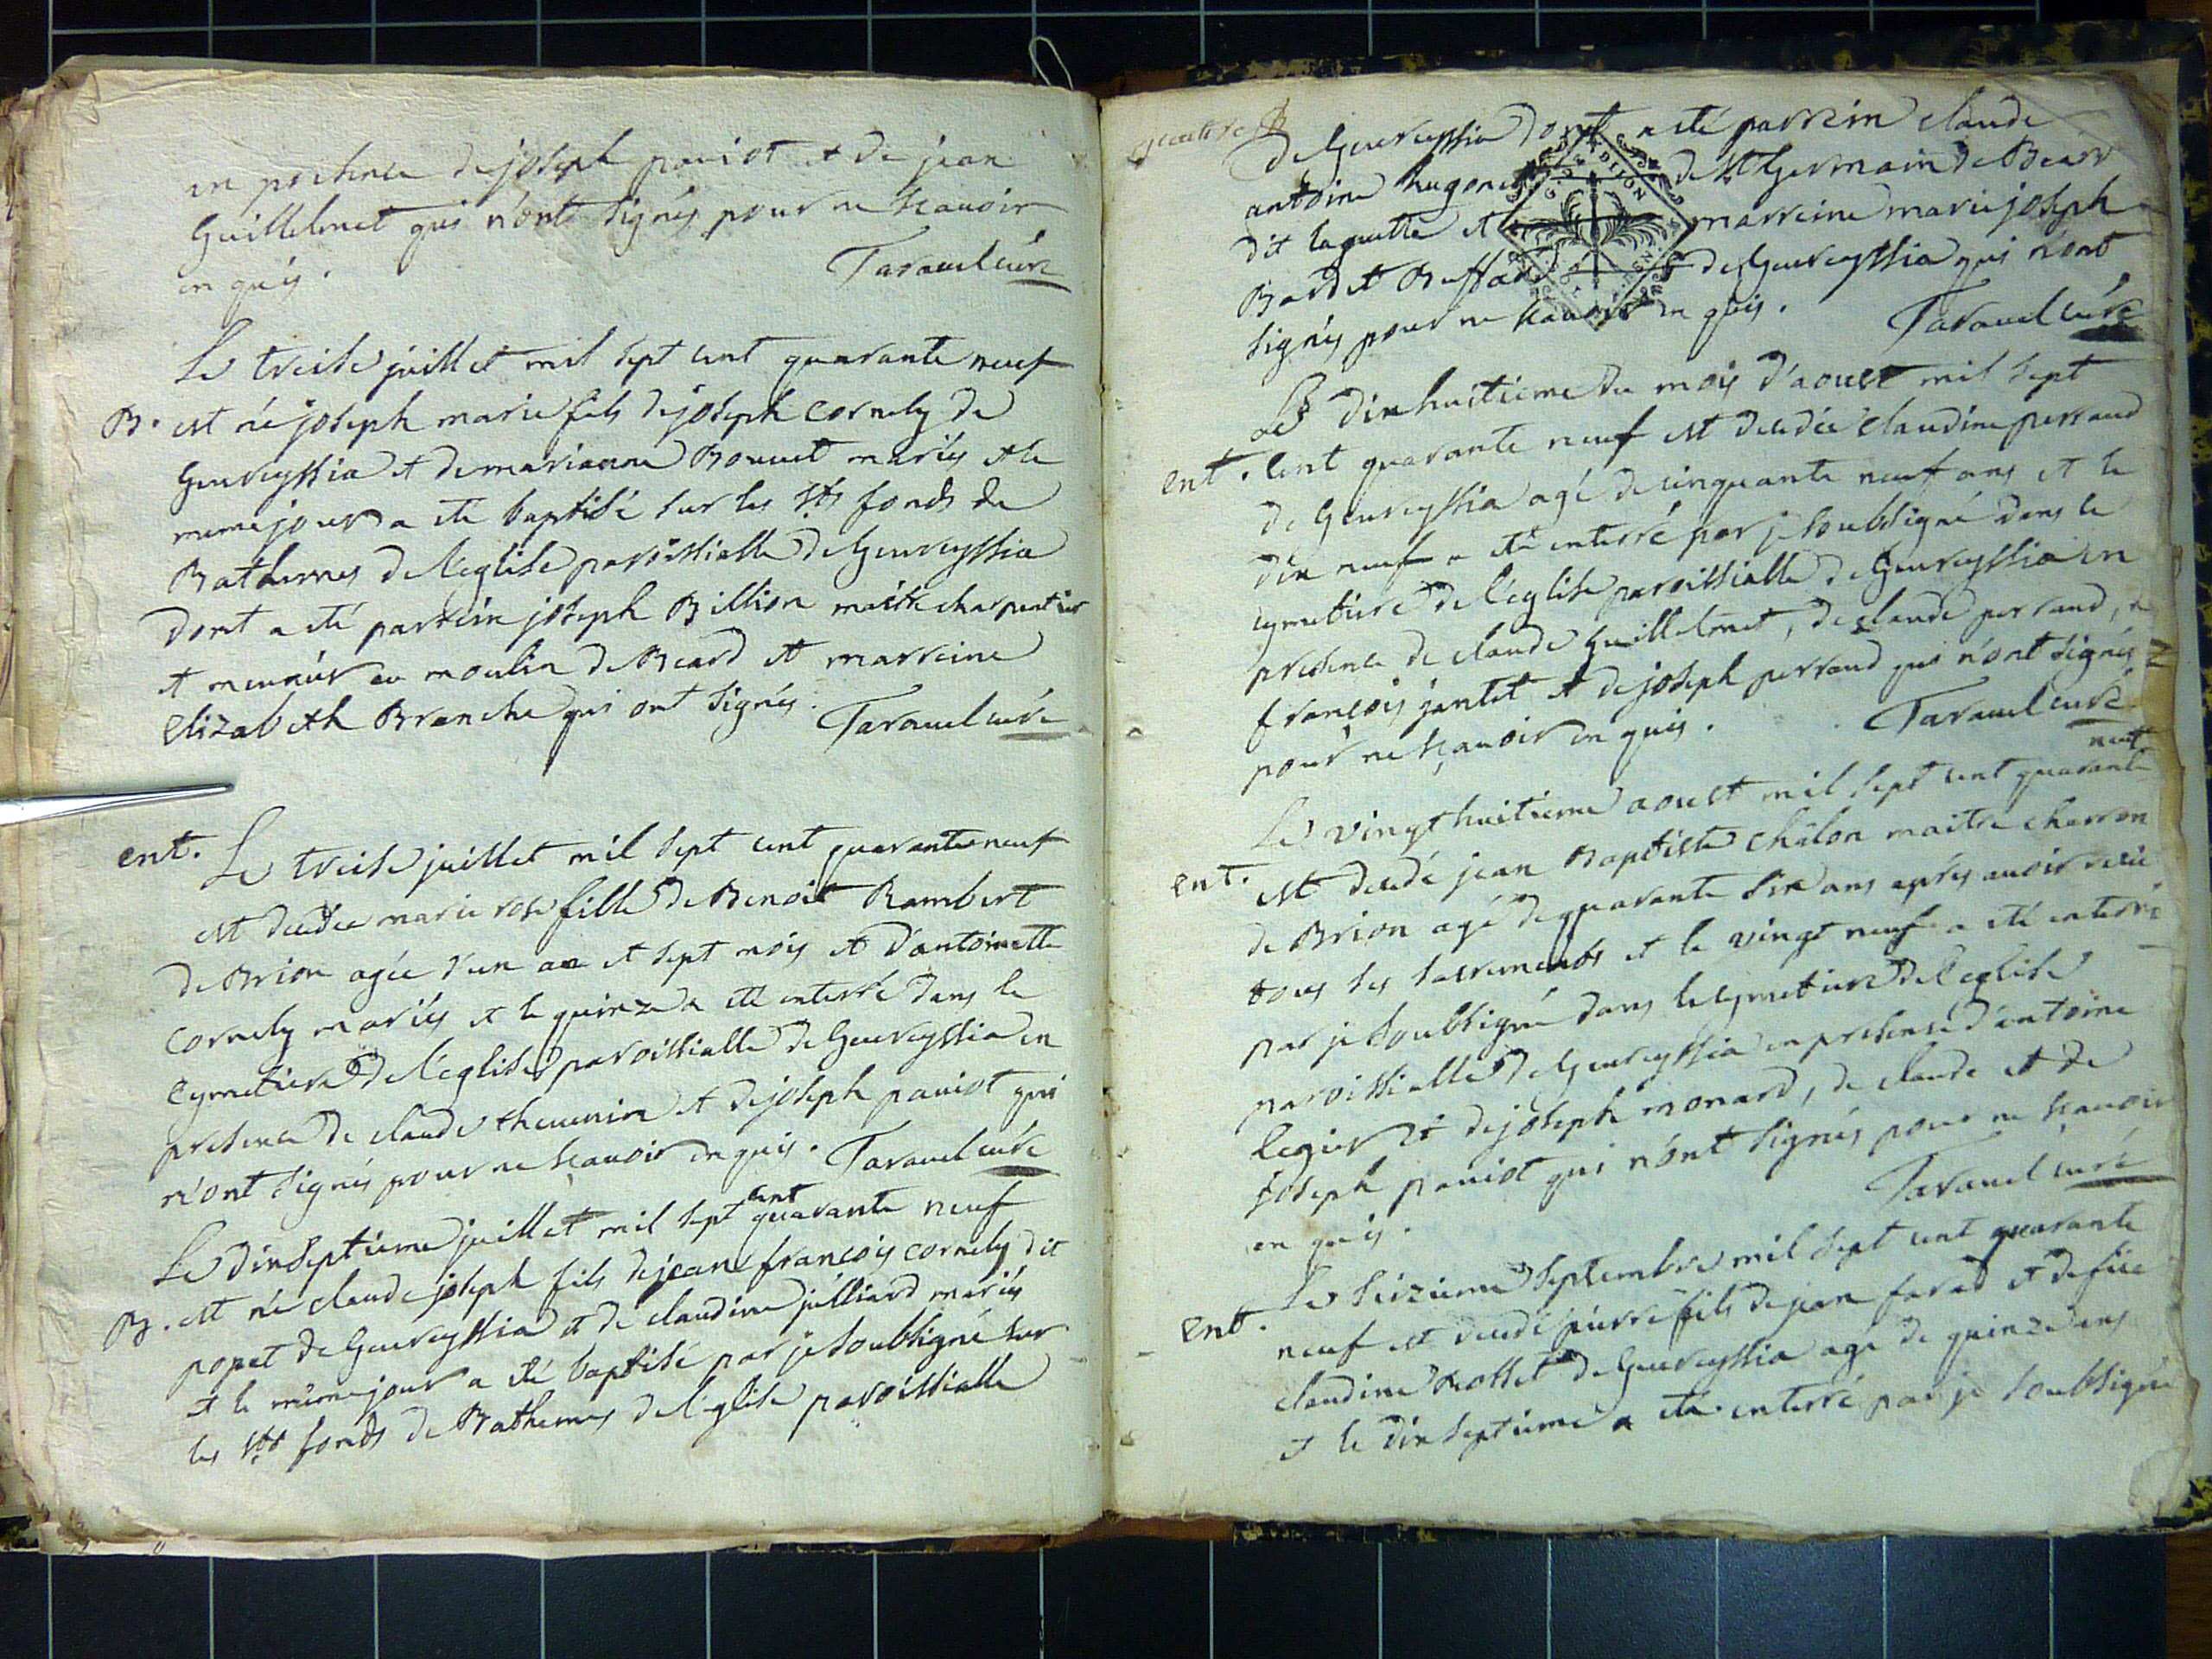 en presence de joseph pauiot et de jean
Guillelmet qui n'ont signés pour ne scauoir
en quis. Tarauel curé
Le treise juillet mil sept cent quarante neuf
B. est né joseph marie fils de joseph cornely de
Geureyssia et de marianne Bouuet mariés et le
meme jour a eté baptisé sur les Sts fonds de
Bathemes de l'eglise paroissialle de Geureyssia
dont a eté parrein joseph Billion maitre charpentier
et meunier au moulin de Beard et marreine
Elizabeth Branche qui ont signés. Tarauel curé
ent. Le treise juillet mil sept cent quarante neuf
est decedee marie rose fille de Benoit Rambert
de Brion agée d'un an et sept mois et d'antoinette
cornely mariés et le quinze a eté enterré dans le
cymetiere de l'eglise paroissialle de Geureyssia en
presence de claude theuenin et de joseph pauiot qui
n'ont signés pour ne scauoir en quis. Tarauel curé
Le dixseptieme juillet mil sept cent quarante neuf
B. est né claude joseph fils de jean francois cornely dit
popet de Geureyssia et de claudine julliard mariés
et le même jour a eté baptisé par je soubsigné sur
les Sts fonds de Bathemes de l'eglise paroissialle
de Geureyssia dont a eté parrein claude
antoine hugonet de St Germain de Beard
dit laguette et marreine marie joseph
Bardet Buffard de Geureyssia qui n'ont
signés pour ne scauoir en quis. Tarauel curé
Le dixhuitieme du mois d'aoust mil sept
ent. cent quarante neuf est decedée claudine perraud
de Geureyssia agé de cinquante neuf ans et le
dix neuf a eté enterré par je soubsigné dans le
cymetiere de l'eglise paroissialle de Geureyssia en
presence de claude Guillelmet, de claude perraud, de
francois jantet et de joseph perraud qui n'ont signés
pour ne scauoir en quis. Tarauel curé
Le vingt huitieme aoust mil sept cent quarante neuf
ent. est decedé jean Baptiste châlon maitre charron
de Brion agé de quarante six ans aprés auoir recu
tous ses sacrements et le vingt neuf a eté enterré
par je soubsigné dans le cymetiere de l'eglise
paroissialle de Geureyssia en presence d'antoine
legier et de joseph monard, de claude et de
joseph pauiot qui n'ont signés pour ne scauoir
en quis. Tarauel curé
Le seizieme septembre mil sept cent quarante
ent. neuf est decedé pierre fils de jean farad et de feüe
claudine Rosset de Geureyssia agé de quinze ans
et le dix septieme a eté enterré par je soubsigné